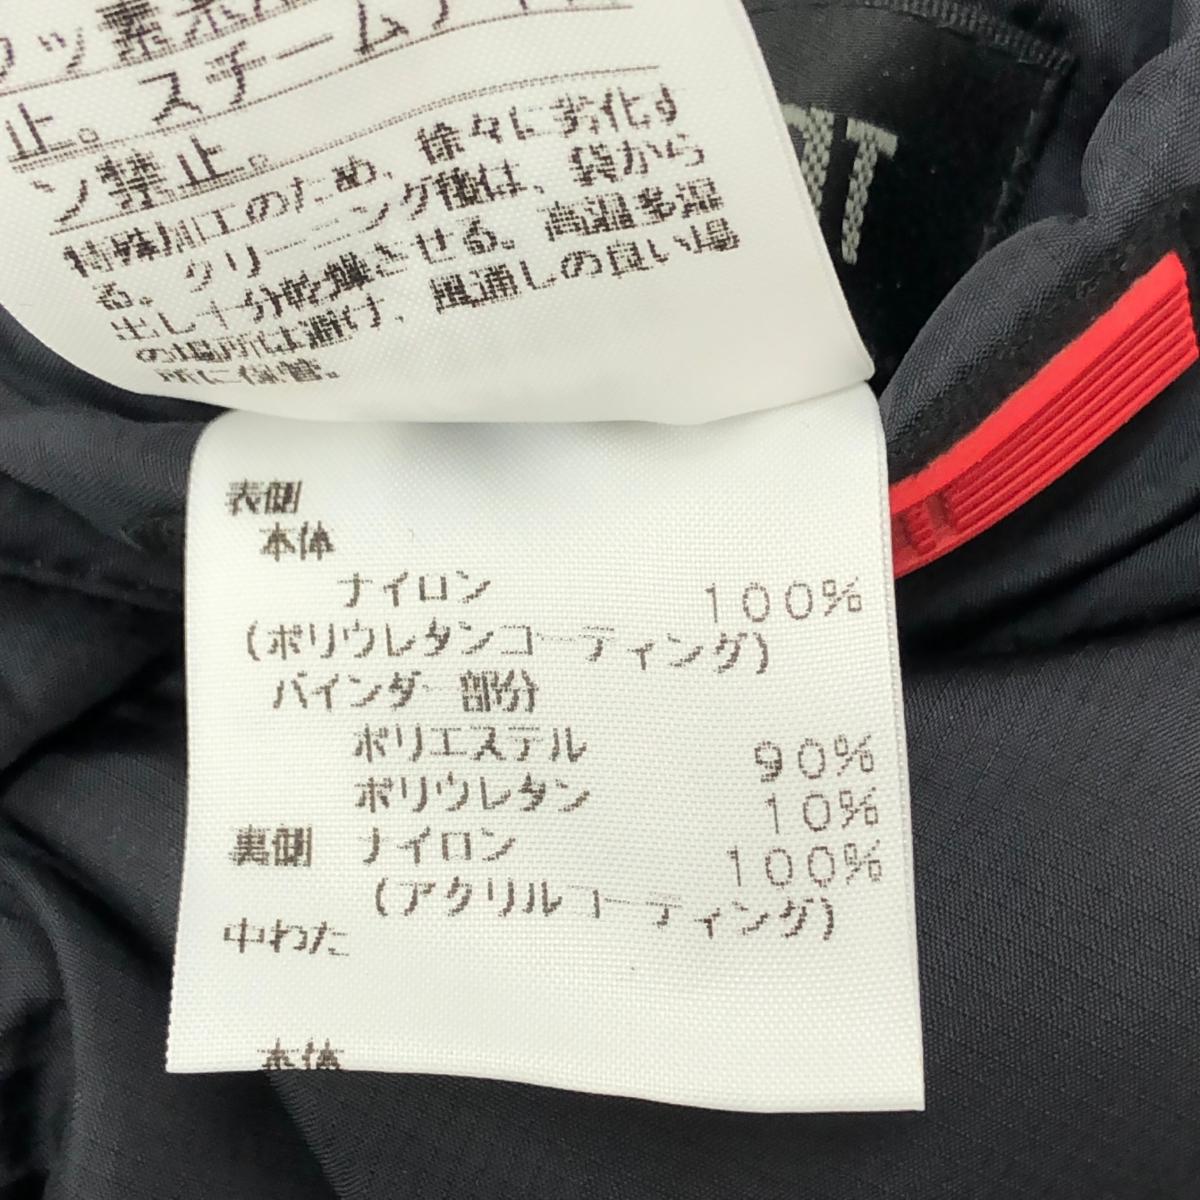 止。スチームアイロ
ン禁止。
特殊加工のため、徐々に劣化す
る。クリーニング後は、袋から
出し十分乾燥させる。高温多湿
の場所は避け、風通しの良い場
所に保管。
表側
本体
ナイロン 100%
(ポリウレタンコーティング)
バインダー部分
ポリエステル 90%
ポリウレタン 10%
裏側 ナイロン 100%
(アクリルコーティング)
中わた
本体